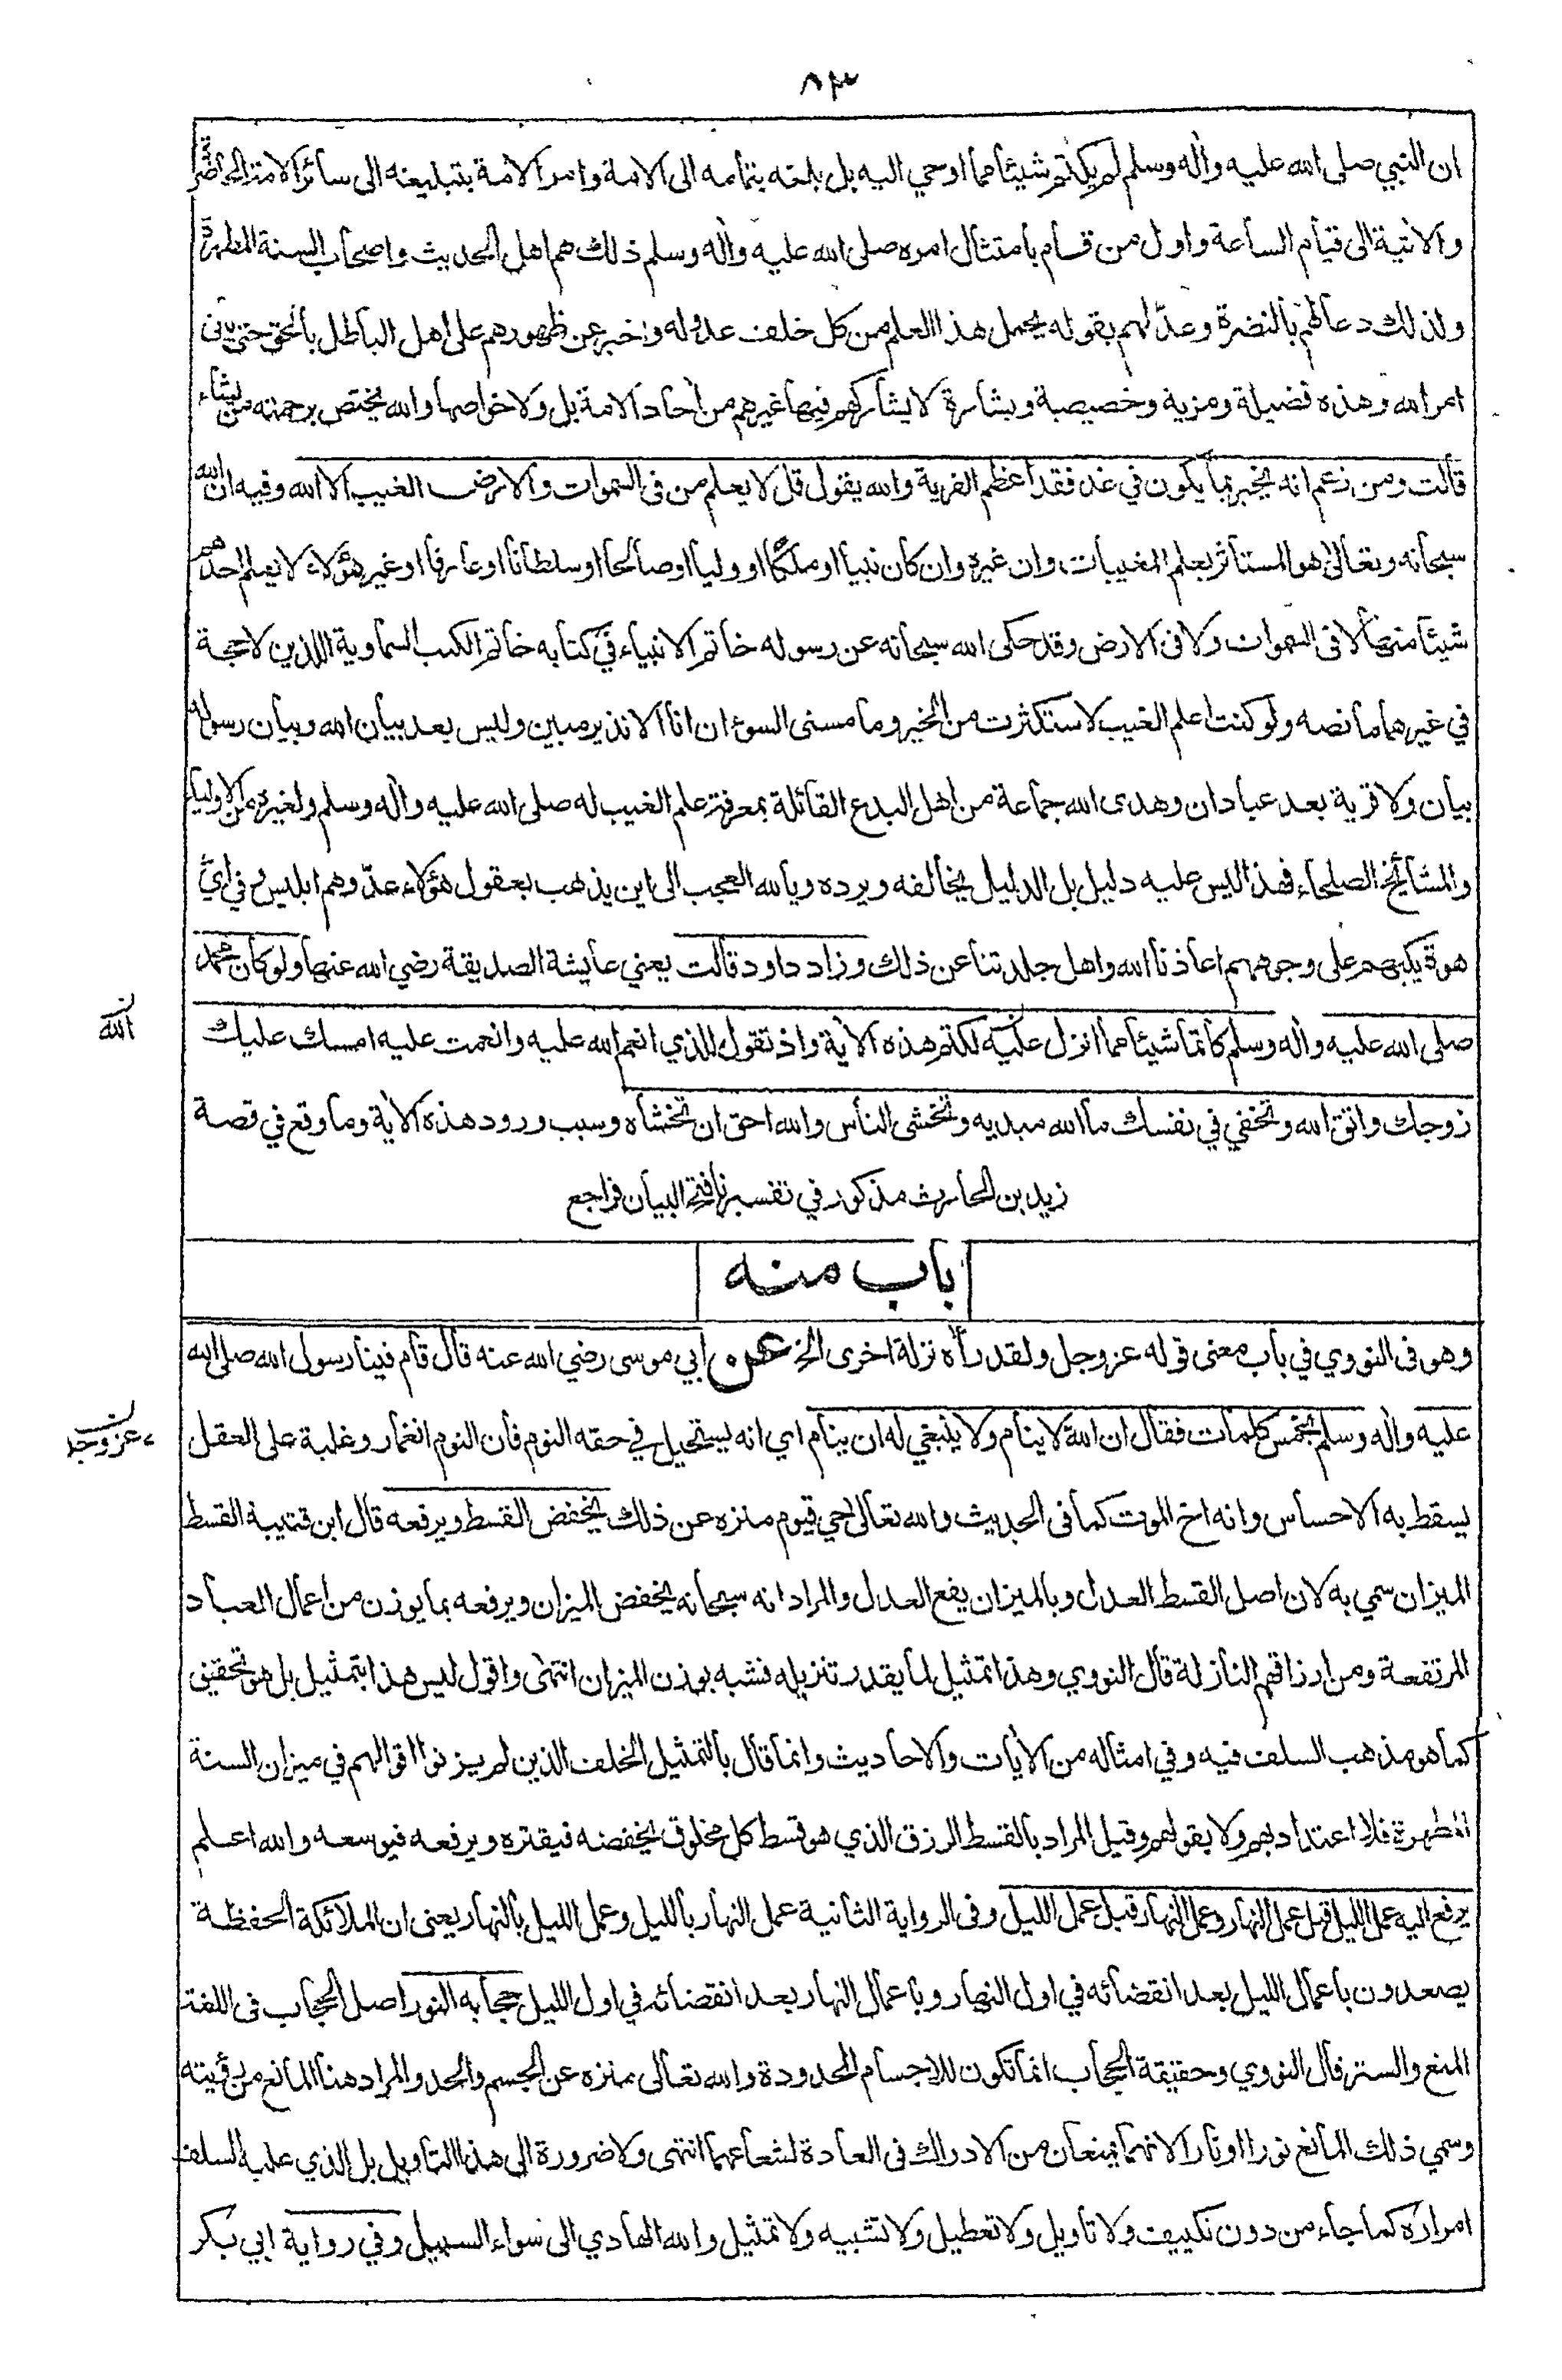 ٨٣
ان النبي صلى الله عليه واٰله وسلم لم يكتم شيئا مما اوحي اليه بل بلغه بتمامه الى الامة وامر الامة بتبليغه الى سائر الامة الحاضرة
والاٰتية الى قيام الساعة واول من قام بامتثال امره صلى الله عليه واٰله وسلم ذلك هم اهل الحديث واصحاب السنة المطهرة
ولذلك دعا لهم بالنضرة وعدّلهم بقوله يحمل هذا العلم من كل خلف عدوله واخبر عن ظهورهم على اهل الباطل بالحق حتى ياتي
امر الله وهذه فضيلة ومزية وخصيصة وبشارة لا يشاركهم فيها غيرهم من اٰحاد الامة بل ولا خواصها والله يختص برحمته من يشاء
قالت ومن زعم انه يخبر بما يكون في غد فقد اعظم الفرية والله يقول قل لا يعلم من فى السموات والارض الغيب الا الله وفيه ان الله
سبحانه وتعالى هو المستاثر بعلم المغيبات وان غيره وان كان نبيا او ملكا او وليا او صالحا او سلطانا او عارفا او غير هؤلاء لا يعلم احدهم
شيئا منها لا فى السموات ولا فى الارض وقد حكى الله سبحانه عن رسوله خاتم الانبياء في كتابه خاتم الكتب السماوية اللذين لا حجة
في غيرهما ما نصه ولو كنت اعلم الغيب لاستكثرت من الخير وما مسنى السوء ان انا الا نذير مبين وليس بعد بيان الله وبيان رسوله
بيان ولا قرية بعد عبادان وهدى الله جماعة من اهل البدع القائلة بمعرفة علم الغيب له صلى الله عليه واٰله وسلم ولغيره من الاولياء
والمشائخ الصلحاء فهذا ليس عليه دليل بل الدليل يخالفه ويرده ويالله العجب الى اين يذهب بعقول هؤلاء عدّوهم ابليس وفي ايّ
هوة يكبهم على وجوههم اعاذنا الله واهل جلدتنا عن ذلك وزاد داود قالت يعني عايشة الصديقة رضي الله عنها ولو كان محمد
صلى الله عليه واٰله وسلم كاتما شيئا مما انزل عليه لكتم هذه الاٰية واذ تقول للذي انعم الله عليه وانعمت عليه امسك عليك
ن الله
زوجك واتق الله وتخفي في نفسك ما الله مبديه وتخشى الناس والله احق ان تخشاه وسبب ورود هذه الاٰية وما وقع في قصة
زيد بن الحارث مذكور في تفسيرنا فتح البيان فراجع
باب منه
وهو فى النووي في باب معنى قوله عز وجل ولقد راٰه نزلة اخرى الخ عن ابي موسى رضي الله عنه قال قام فينا رسول الله صلى الله
عليه واٰله وسلم بخمس كلمات فقال ان الله لا ينام ولا ينبغي له ان ينام اي انه يستحيل في حقه النوم فان النوم انغمار وغلبة على العقل
ن عز وجل
يسقط به الاحساس وانه اخ الموت كما فى الحديث والله تعالى حي قيوم منزه عن ذلك يخفض القسط ويرفعه قال ابن قتيبة القسط
الميزان سمي به لان اصل القسط العدل وبالميزان يقع العدل والمراد انه سبحانه يخفض الميزان ويرفعه بما يوزن من اعمال العباد
المرتفعة ومن ارزاقهم النازلة قال النووي وهذا تمثيل لما يقدر تنزيله فشبه بوزن الميزان انتهى واقول ليس هذا بتمثيل بل هو تحقيق
كما هو مذهب السلف فيه وفي امثاله من الاٰيات والاحاديث وانما قال بالتمثيل الخلف الذين لم يزنوا اقوالهم في ميزان السنة
المطهرة فلا اعتداد بهم ولا بقولهم وقيل المراد بالقسط الرزق الذي هو قسط كل مخلوق يخفضه فيقتره ويرفعه فيوسعه والله اعلم
يرفع اليه عمل الليل قبل عمل النهار وعمل النهار قبل عمل الليل وفى الرواية الثانية عمل النهار بالليل وعمل الليل بالنهار يعنى ان الملائكة الحفظة
يصعدون باعمال الليل بعد انقضائه في اول النهار وباعمال النهار بعد انقضائه في اول الليل حجابه النور اصل الحجاب فى اللغة
المنع والستر قال النووي وحقيقة الحجاب انما تكون للاجسام المحدودة والله تعالى منزه عن الجسم والحد والمراد هنا المانع من رؤيته
وسمي ذلك المانع نورا او نارا لانهما يمنعان من الادراك فى العادة لشعاعهما انتهى ولا ضرورة الى هذا التاويل بل الذي عليه السلف
امراره كما جاء من دون تكييف ولا تاويل ولا تعطيل ولا تشبيه ولا تمثيل والله الهادي الى سواء السبيل وفي رواية ابي بكر